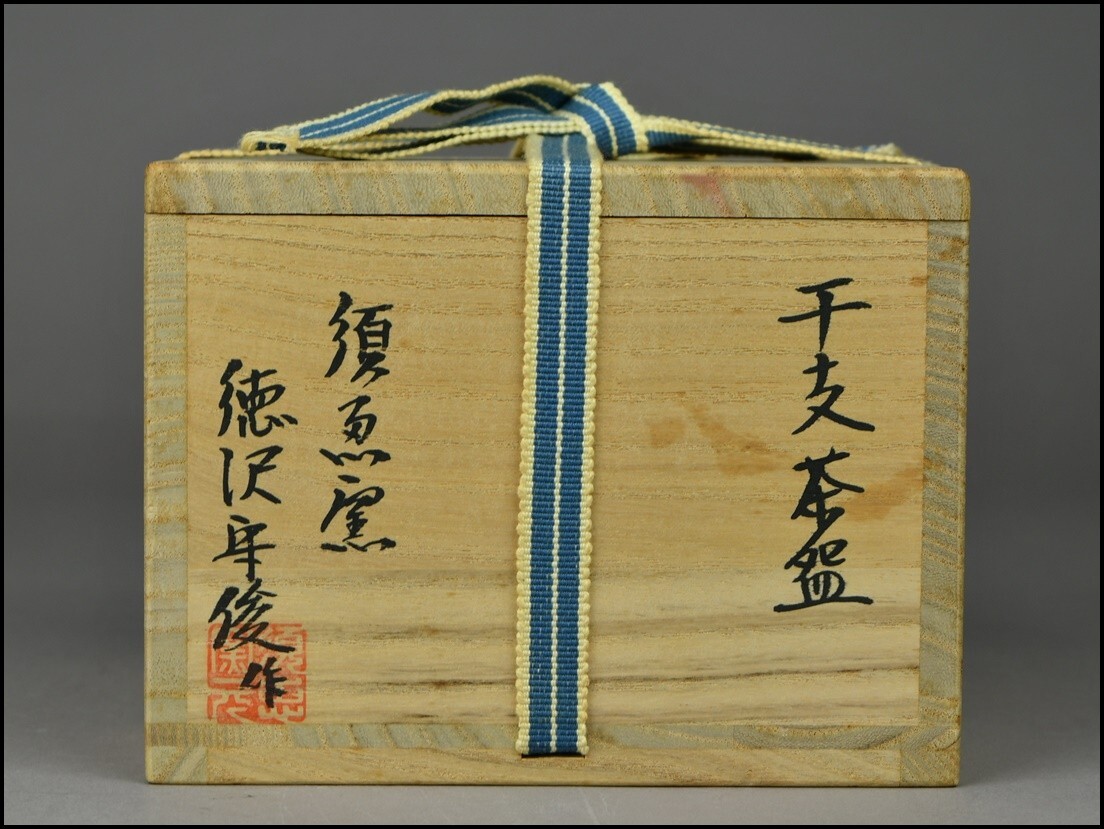 干支茶盌
須恵窯
徳沢守俊作